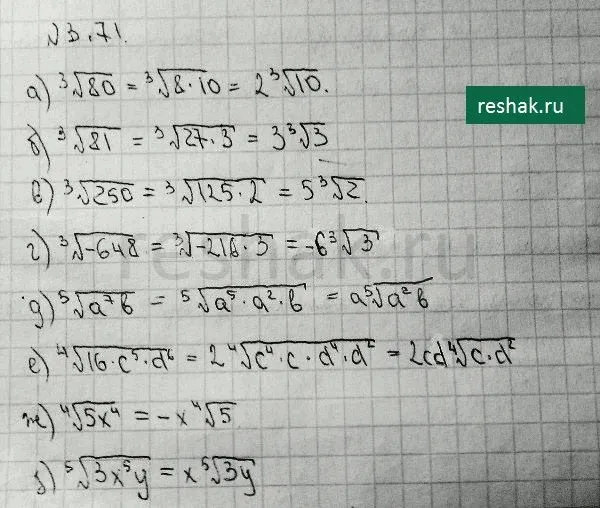 №3.71.
а) ³√80 = ³√8·10 = 2³√10.
reshak.ru
б) ³√81 = ³√27·3 = 3³√3
в) ³√250 = ³√125·2 = 5³√2.
г) ³√-648 = ³√-216·3 = -6³√3
reshak.ru
д) ⁵√a⁷b = ⁵√a⁵·a²·b = a⁵√a²b
е) ⁴√16·c⁵·d⁶ = 2⁴√c⁴·c·d⁴·d² = 2cd⁴√c·d²
ж) ⁴√5x⁴ = -x⁴√5
з) ⁵√3x⁵y = x⁵√3y